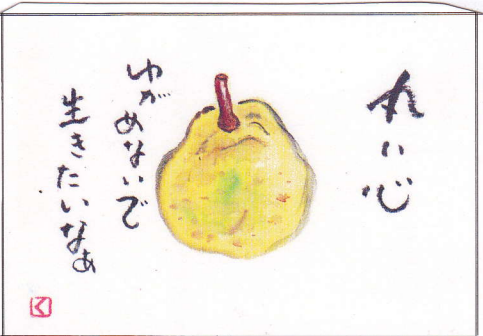 丸い心
ゆがめないで
生きたいなぁ
く